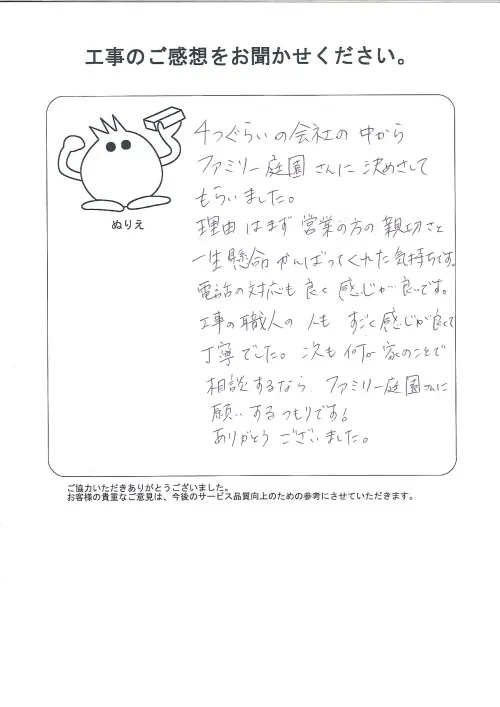 工事のご感想をお聞かせください。
ぬりえ
4つぐらいの会社の中から
ファミリー庭園さんに決めさして
もらいました。
理由はまず営業の方の親切さと
一生懸命がんばってくれた気持ちです。
電話の対応も良く感じが良いです。
工事の職人の人もすごく感じが良くて
丁寧でした。次も何か家のことで
相談するなら、ファミリー庭園さんに
願いするつもりです!
ありがとうございました。
ご協力いただきありがとうございました。
お客様の貴重なご意見は、今後のサービス品質向上のための参考にさせていただきます。